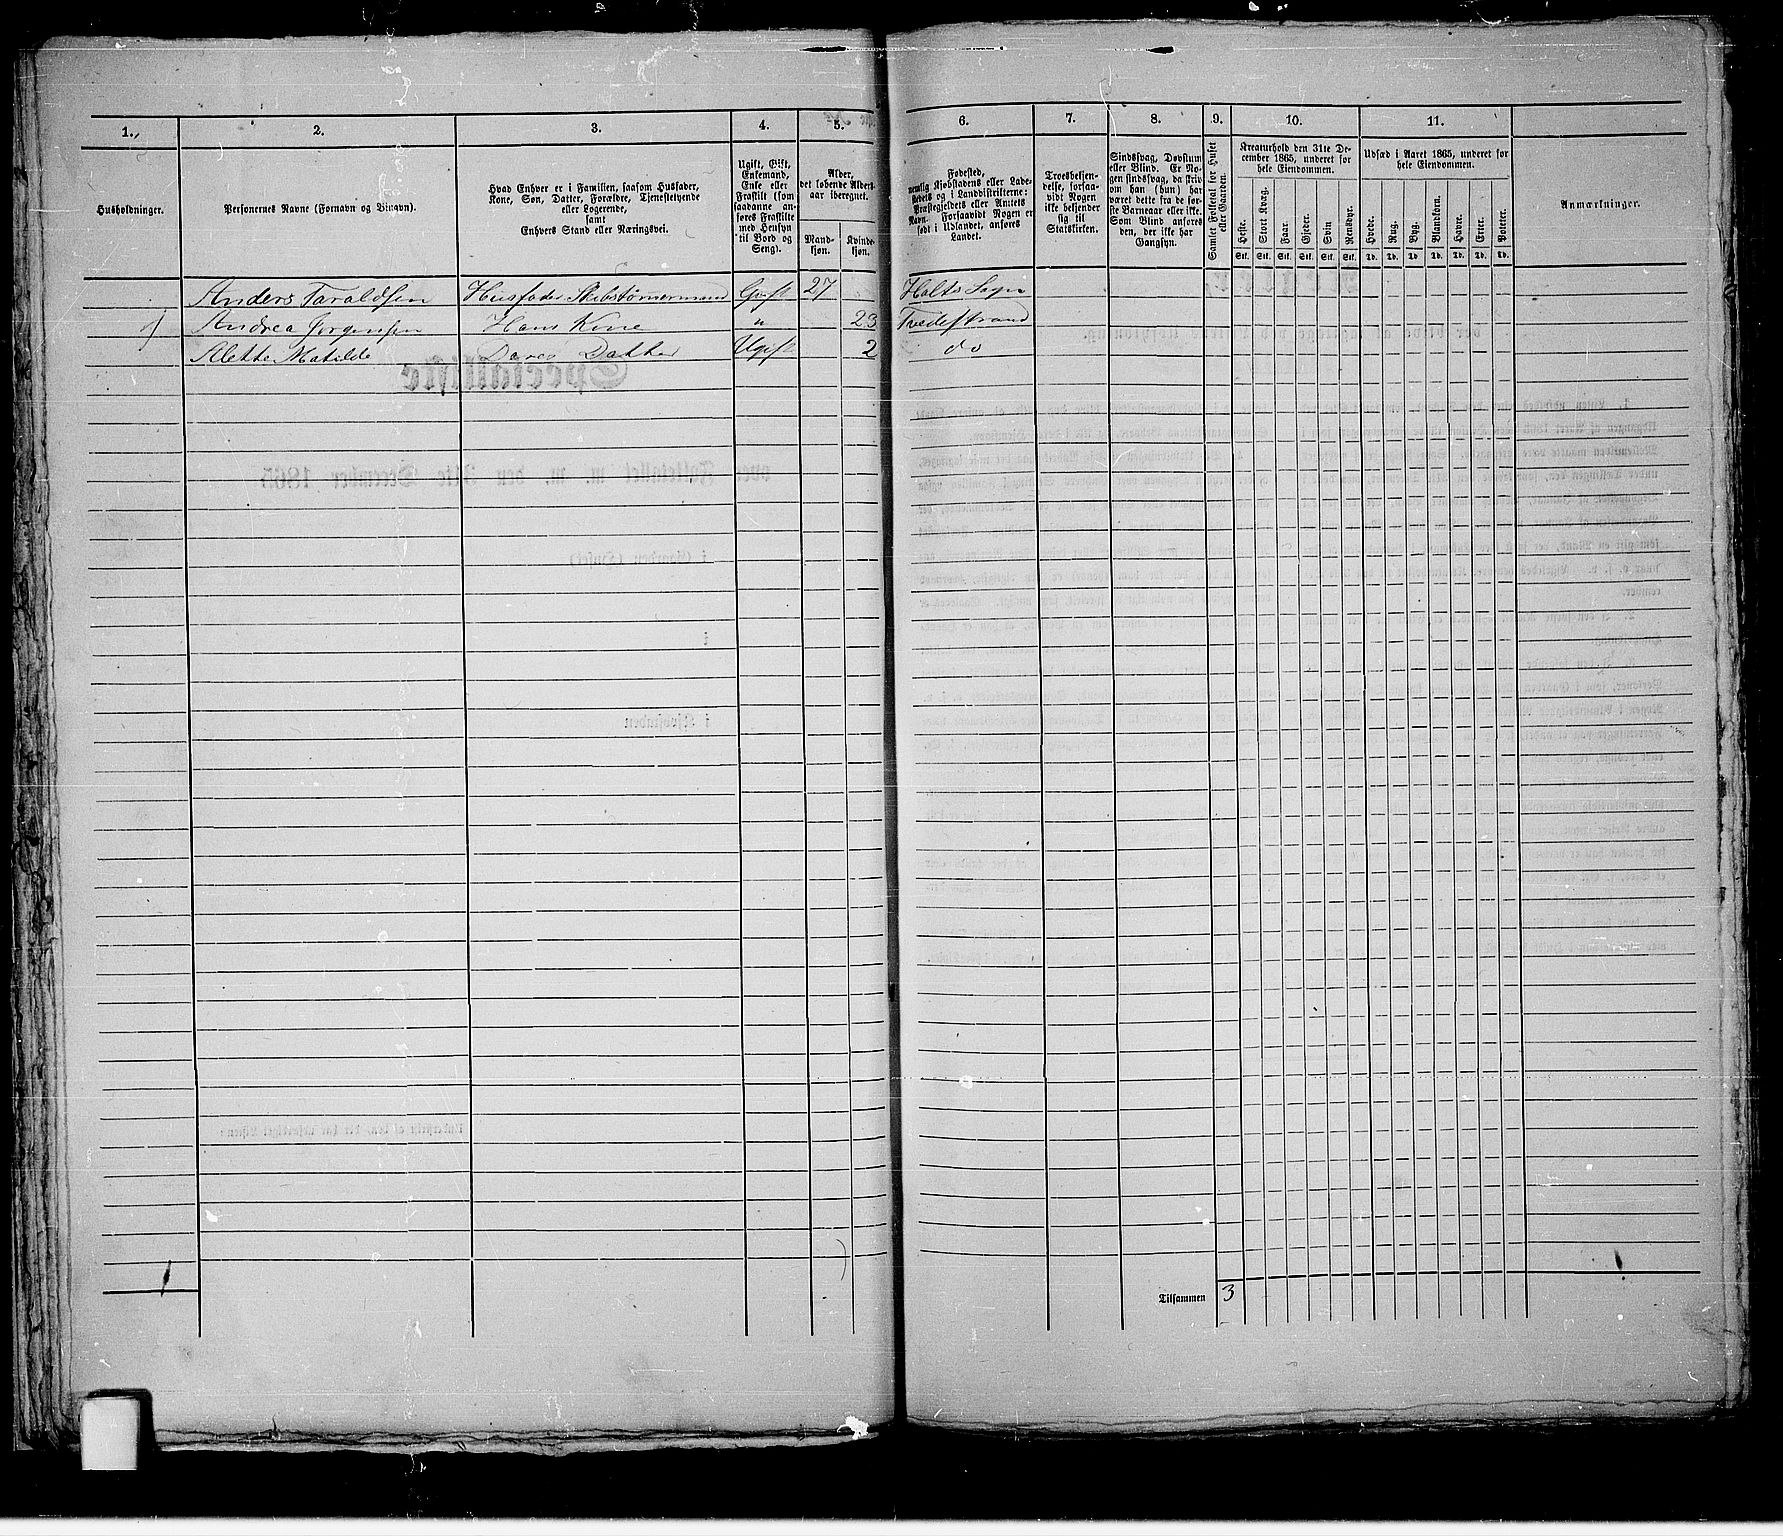 1. 2. 3. 4. 5. 6. 7. 8. 9. 10. 11.
Husholdninger.
Personernes Navne (Fornavn og Binavn).
Hvad Enhver er i Familien, saasom Husfader,
Kone, Søn, Datter, Forældre, Tjenestetyende
eller Logerende,
samt
Enhvers Stand eller Næringsvei.
Ugift, Gift,
Enkemand,
Enke eller
Fraskilt (som
saadanne an-
føres Fraskilte
med Hensyn
til Bord og
Seng).
Alder,
det løbende Alders-
aar iberegnet.
Mand-
kjøn.
Kvinde-
kjøn.
Fødested,
nemlig Kjøbstadens eller Lade-
stedets og i Landdistrikterne:
Præstegjeldets eller Annexets
Navn. Forsaavidt Nogen er
født i Udlandet, anføres
Landet.
Troesbekjen-
delse, forsaa-
vidt Nogen
ikke bekjender
sig til
Statskirken.
Sindssvag, Døvstum
eller Blind. Er No-
gen sindssvag, da skriv
om han (hun) har
været dette fra de før-
ste Barneaar eller ikke.
Som Blind anføres
den, der ikke har
Gangsyn.
Samlet Folketal for Huset
eller Gaarden.
Kreaturhold den 31te De-
cember 1865, underet for
hele Eiendommen.
Heste.
Stort Kvæg.
Faar.
Gjeder.
Svin
Rensdyr.
Stk. Stk. Stk. Stk. Stk. Stk.
Udsæd i Aaret 1865, underet for
hele Eiendommen.
Hvede.
Rug.
Byg.
Blandkorn.
Havre.
Erter.
Poteter.
Td. Td. Td. Td. Td. Td. Td.
Anmærkninger.
Anders Taraldsen Husfader Skibstømmermand Gift 27 Holts Sogn
1 Andrea Jørgensen Hans Kone " 23 Tvedestrand
Alette Matilde Deres Datter Ugift 2 do
1
Tilsammen 3